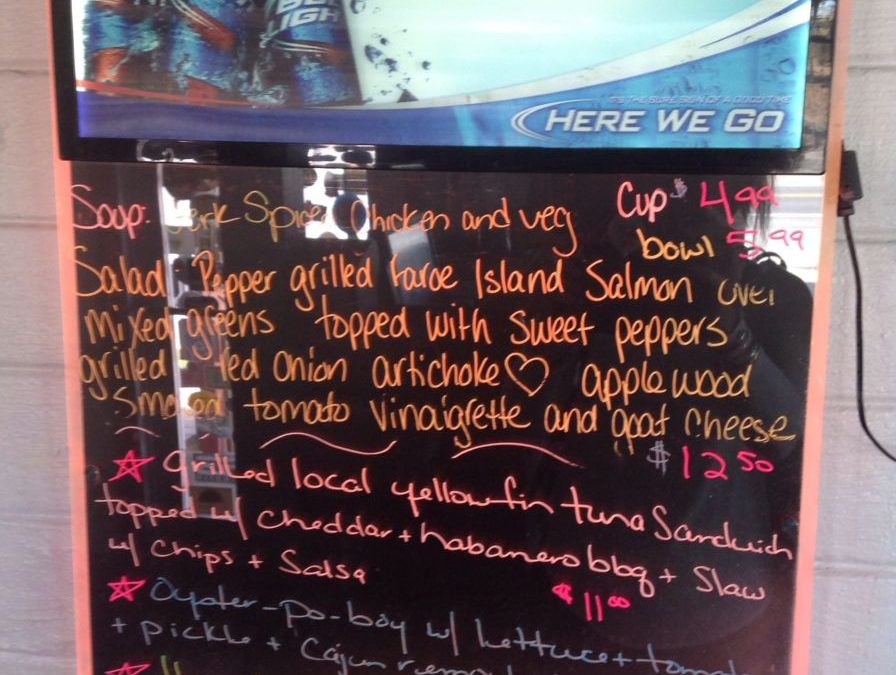 BUD
LIGHT
IT'S THE SURE SIGN OF A GOOD TIME
HERE WE GO
Soup: Jerk Spiced Chicken and veg Cup $4.99
bowl 5.99
Salad Pepper grilled Faroe Island Salmon over
mixed greens topped with sweet peppers
grilled red onion artichoke♡ applewood
smoked tomato vinaigrette and goat cheese
$12.50
☆ Grilled local yellowfin tuna Sandwich
topped w/ cheddar + habanero bbq + Slaw
w/ chips + Salsa
$11.00
☆ Oyster-po-boy w/ lettuce + tomato
+ pickle + Cajun